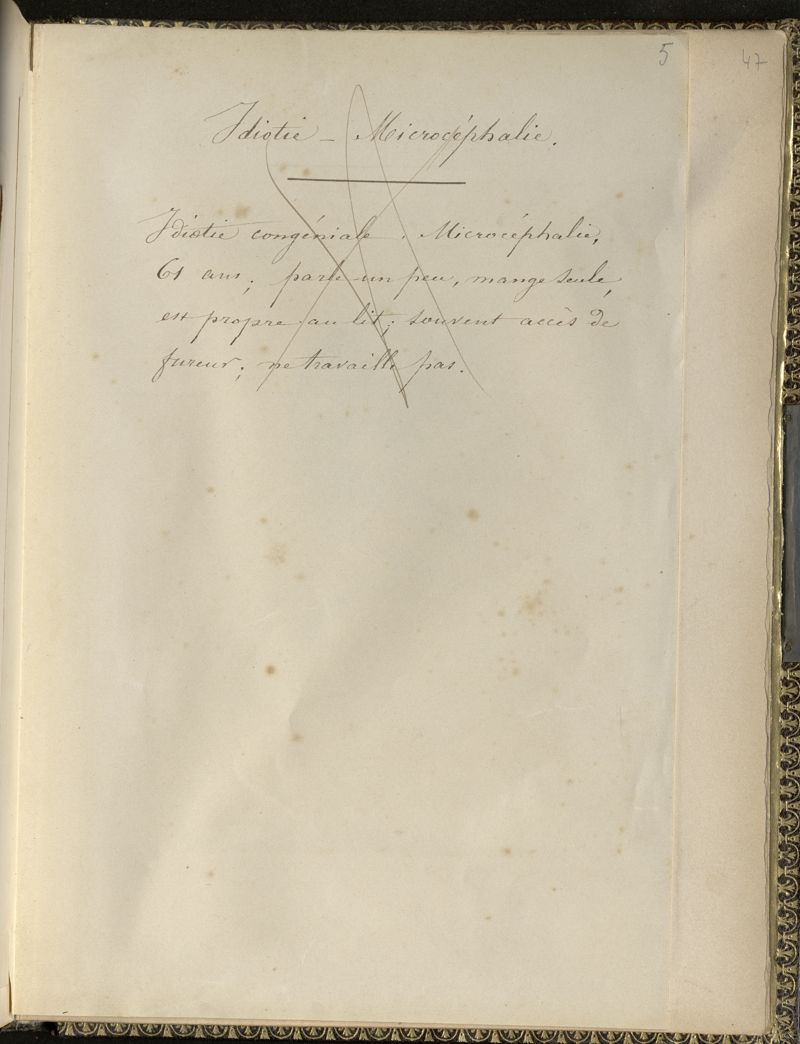 5
47
Idiotie – Microcéphalie.
Idiotie congéniale. Microcéphalie,
61 ans; parle un peu, mange seule,
est propre au lit; souvent accès de
fureur; ne travaille pas.